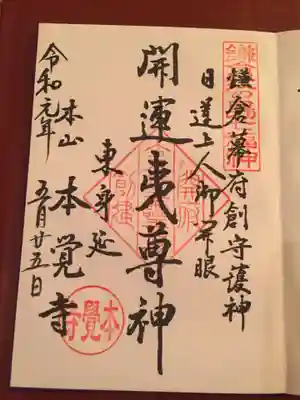 鎌倉幕府創守護神
日蓮上人御開眼
開運夷尊神
東身延
本山 本覺寺
令和元年 五月廿五日
本覺寺